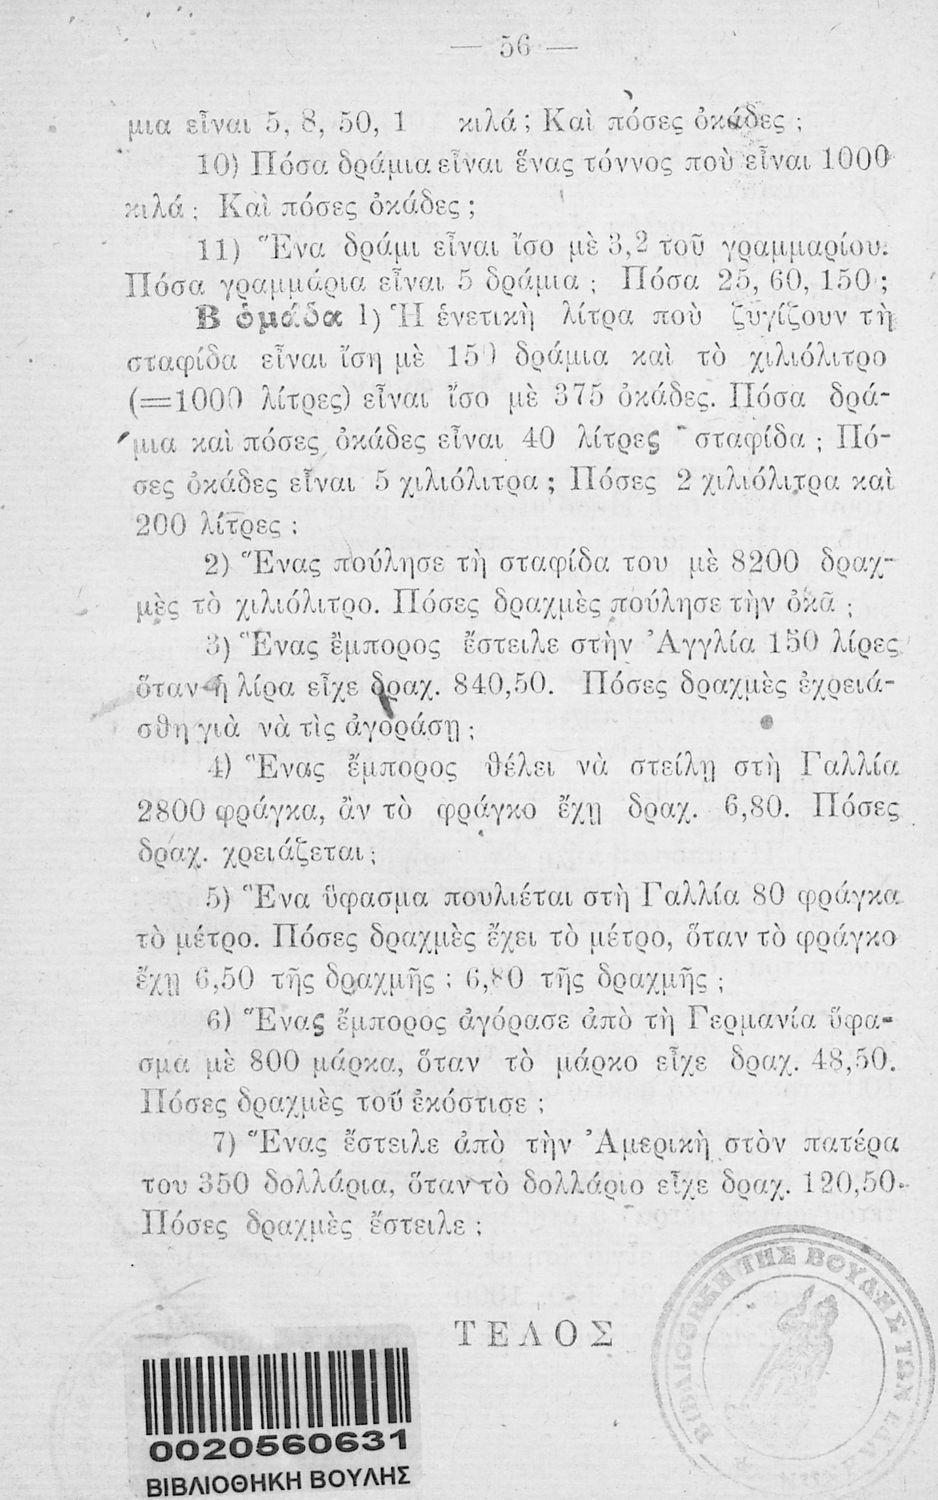 — 56 —
μια εἶναι 5, 8, 50, 1 κιλά; Καὶ πόσες ὀκάδες ;
10) Πόσα δράμια εἶναι ἕνας τόννος ποὺ εἶναι 1000
κιλά ; Καὶ πόσες ὀκάδες ;
11) Ἕνα δράμι εἶναι ἴσο μὲ 3,2 τοῦ γραμμαρίου.
Πόσα γραμμάρια εἶναι 5 δράμια ; Πόσα 25, 60, 150 ;
Β ὁμάδα 1) Ἡ ἑνετικὴ λίτρα ποὺ ζυγίζουν τὴ
σταφίδα εἶναι ἴση μὲ 150 δράμια καὶ τὸ χιλιόλιτρο
(=1000 λίτρες) εἶναι ἴσο μὲ 375 ὀκάδες. Πόσα δρά-
μια καὶ πόσες ὀκάδες εἶναι 40 λίτρες σταφίδα ; Πό-
σες ὀκάδες εἶναι 5 χιλιόλιτρα ; Πόσες 2 χιλιόλιτρα καὶ
200 λίτρες ;
2) Ἕνας πούλησε τὴ σταφίδα του μὲ 8200 δραχ-
μὲς τὸ χιλιόλιτρο. Πόσες δραχμὲς πούλησε τὴν ὀκᾶ ;
3) Ἕνας ἔμπορος ἔστειλε στὴν Ἀγγλία 150 λίρες
ὅταν ἡ λίρα εἶχε δραχ. 840,50. Πόσες δραχμὲς ἐχρειά-
σθη γιὰ νὰ τὶς ἀγοράσῃ ;
4) Ἕνας ἔμπορος θέλει νὰ στείλῃ στὴ Γαλλία
2800 φράγκα, ἂν τὸ φράγκο ἔχῃ δραχ. 6,80. Πόσες
δραχ. χρειάζεται ;
5) Ἕνα ὕφασμα πουλιέται στὴ Γαλλία 80 φράγκα
τὸ μέτρο. Πόσες δραχμὲς ἔχει τὸ μέτρο, ὅταν τὸ φράγκο
ἔχῃ 6,50 τῆς δραχμῆς ; 6,80 τῆς δραχμῆς ;
6) Ἕνας ἔμπορος ἀγόρασε ἀπὸ τὴ Γερμανία ὕφα-
σμα μὲ 800 μάρκα, ὅταν τὸ μάρκο εἶχε δραχ. 48,50.
Πόσες δραχμὲς τοῦ ἐκόστισε ;
7) Ἕνας ἔστειλε ἀπὸ τὴν Ἀμερικὴ στὸν πατέρα
του 350 δολλάρια, ὅταν τὸ δολλάριο εἶχε δραχ. 120,50.
Πόσες δραχμὲς ἔστειλε ;
ΤΕΛΟΣ
ΒΙΒΛΙΟΘΗΚΗ ΤΗΣ ΒΟΥΛΗΣ ΤΩΝ
0020560631
ΒΙΒΛΙΟΘΗΚΗ ΒΟΥΛΗΣ